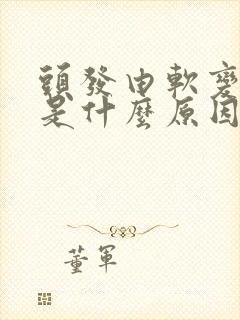 頭發由軟變
是什麼原因
董軍